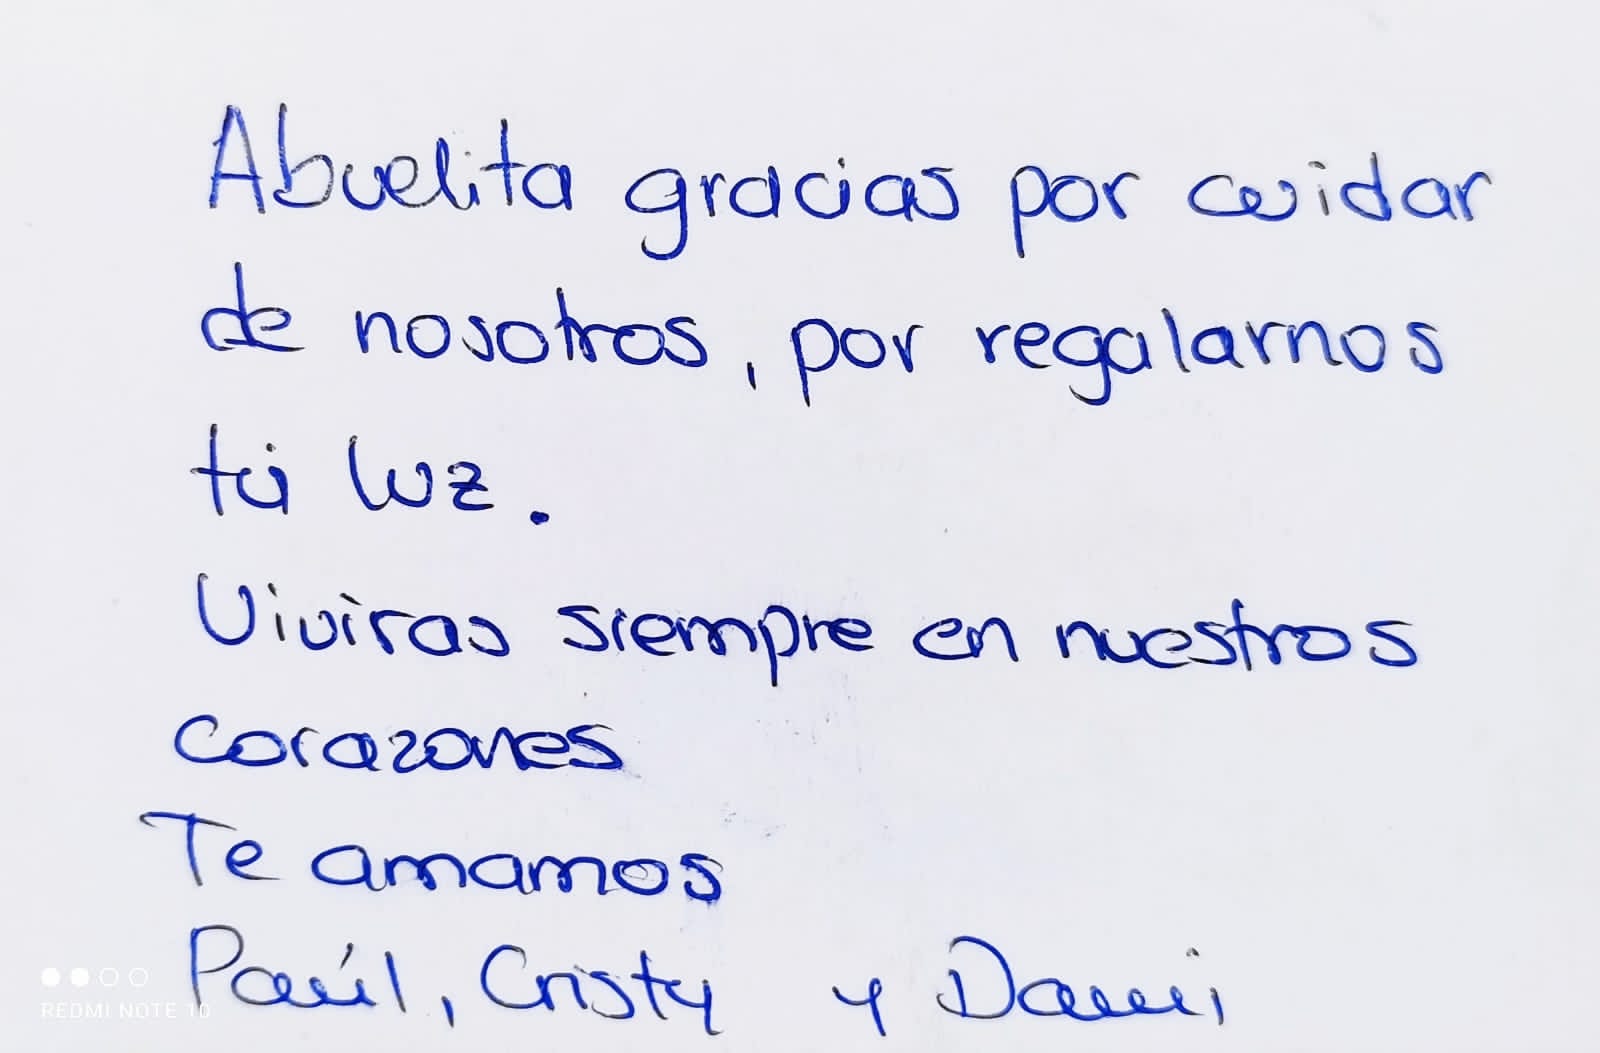 Abuelita gracias por cuidar
de nosotros, por regalarnos
tú luz.
Viviras siempre en nuestros
corazones
Te amamos
Paúl, Cristy y Dami
REDMI NOTE 10